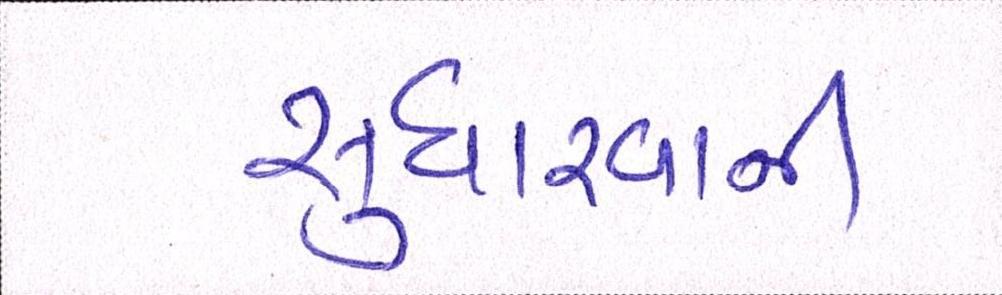 સુધારવાની